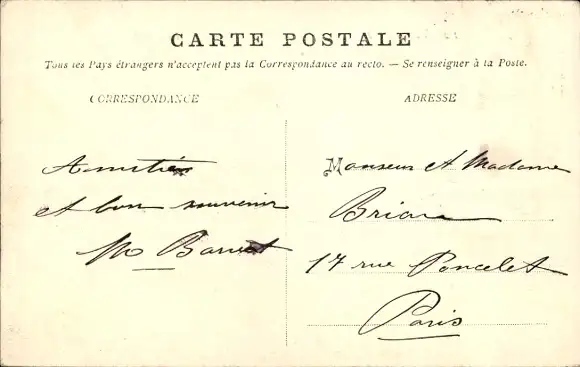 CARTE POSTALE
Tous les Pays étrangers n'acceptent pas la Correspondance au recto. — Se renseigner à la Poste.
CORRESPONDANCE
Amitiés
et bon souvenir
M
ADRESSE
Monsieur et Madame
17 rue Poncelet
Paris